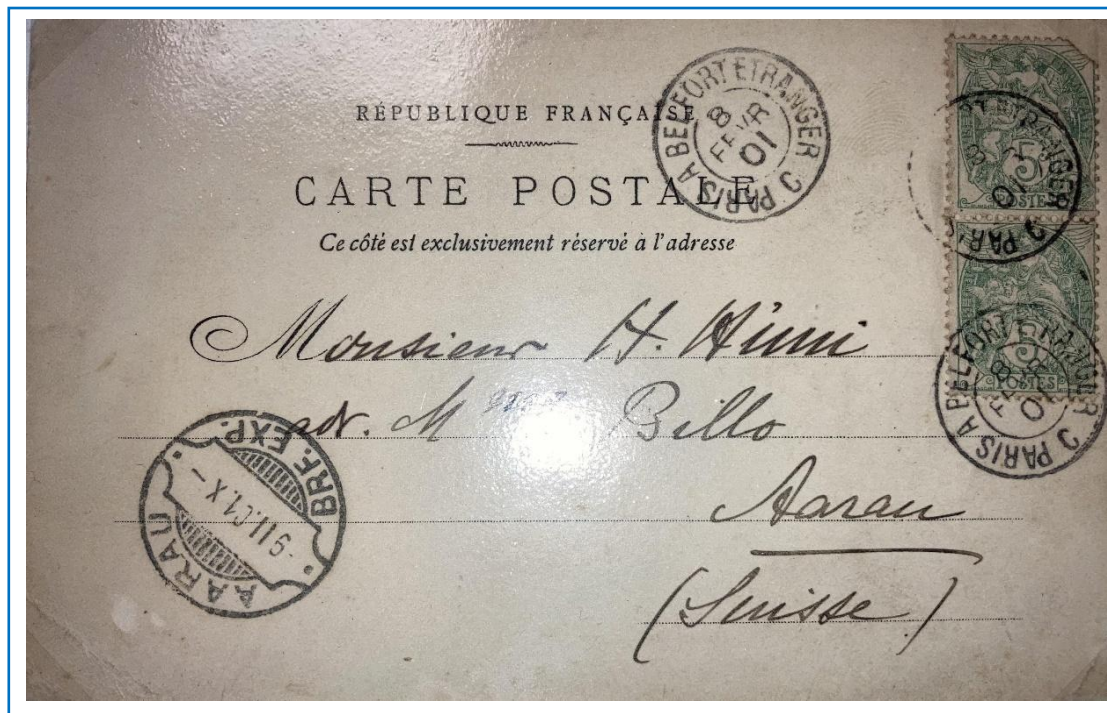 RÉPUBLIQUE FRANÇAISE
CARTE POSTALE
Ce côté est exclusivement réservé à l'adresse
PARIS A BELFORT ETRANGER C
8
FEVR
01
5
POSTES
PARIS ETRANGER C
8
01
5
POSTES
PARIS A BELFORT ETRANGER C
8
01
Monsieur H. Hünni
adr. M Billo
Aarau
(Suisse)
AARAU
-9 II.01.X-
BRF. EXP.